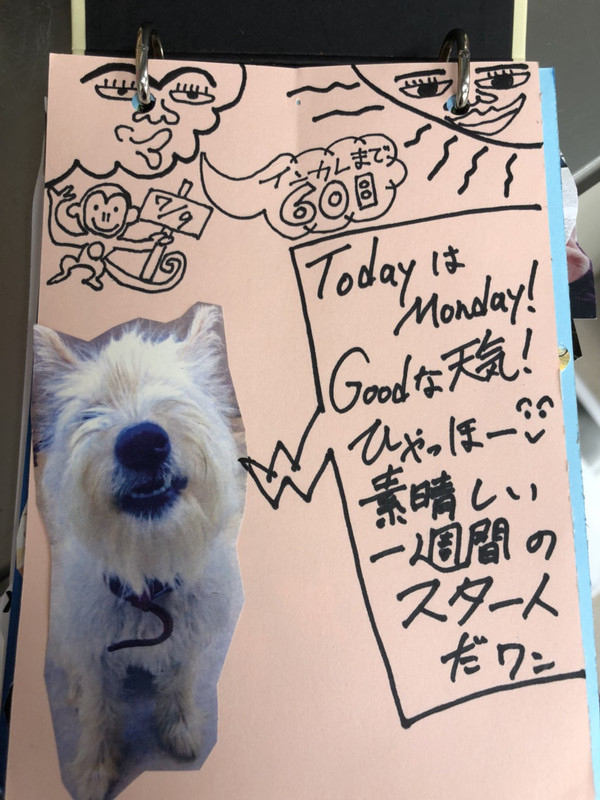 インカレまで
60日
7/9
Today は
Monday!
Goodな天気!
ひゃっほー
素晴しい
一週間の
スタート
だワン